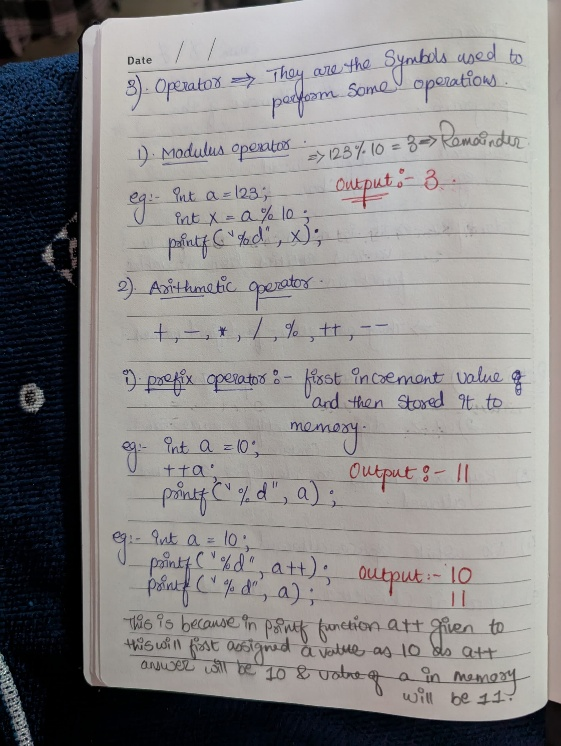 Date / /
3). Operator ⇒ They are the Symbols used to
perform some operations.
1). Modulus operator. ⇒ 123 % 10 = 3 ⇒ Remainder.
eg:- int a = 123; Output:- 3.
int x = a % 10;
printf("%d", x);
2) Arithmetic operator.
+, -, *, /, %, ++, --
i). prefix operator:- first increment value of
and then stored it to
memory.
eg:- int a = 10;
++a; Output:- 11
printf("%d", a);
eg:- int a = 10;
printf("%d", a++); output:- 10
printf("%d", a); 11
This is because in printf function a++ given to
this will first assigned a value as 10 so a++
answer will be 10 & value of a in memory
will be 11.